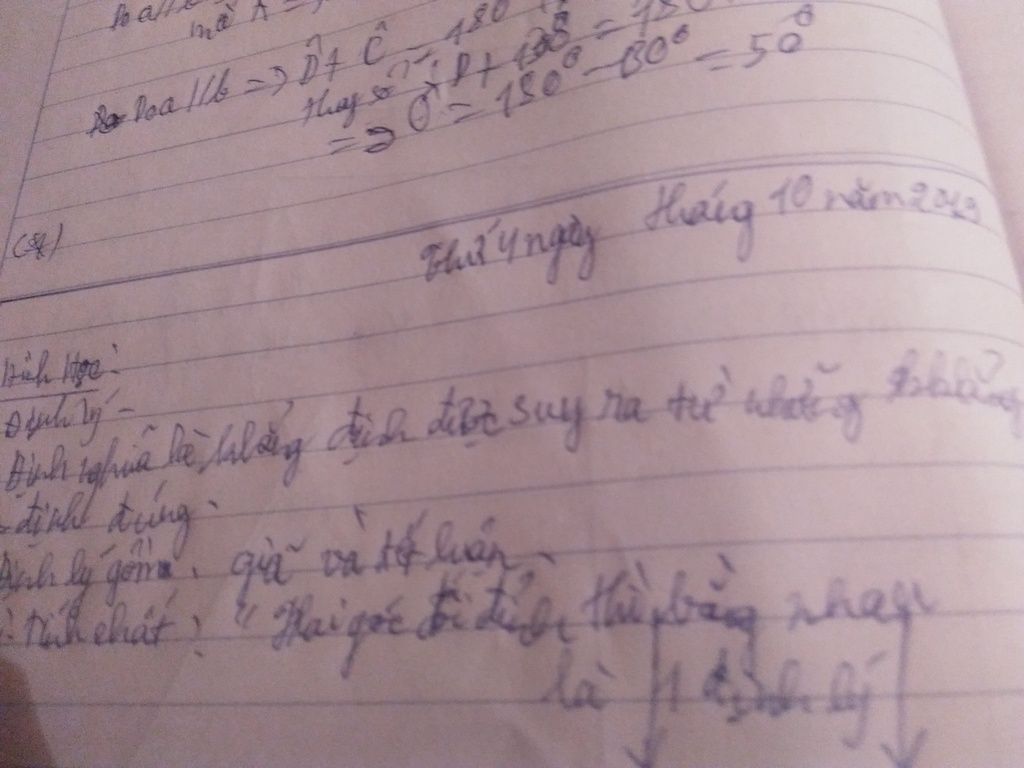 Do a//b => D̂ + Ĉ = 180
Thay số D + 130° = 180
=> D̂ = 180° - 130° = 50°
Thứ 4 ngày tháng 10 năm 2019
Hình Học
Định lý
Định nghĩa là khẳng định được suy ra từ những khẳng
định đúng
Định lý gồm: giả và kết luận
tính chất: "Hai góc đối đỉnh thì bằng nhau
là 1 định lý